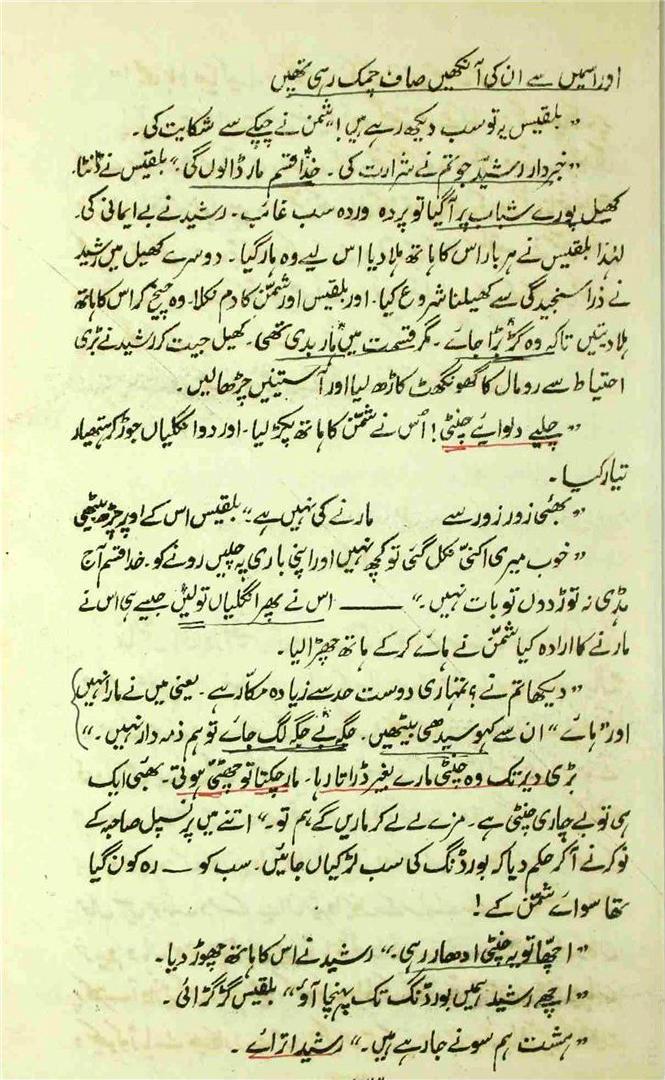 اور اسمیں سے ان کی آنکھیں صاف چمک رہی تھیں
" بلقیس یہ تو سب دیکھ رہے ہیں! شمن نے چپکے سے شکایت کی۔
" خبردار رشید جو تم نے شرارت کی۔ خدا قسم مار ڈالوں گی۔" بلقیس نے ڈانٹا۔
کھیل پورے شباب پر آگیا تو پردہ وردہ سب غائب۔ رشید نے بے ایمانی کی۔
لہٰذا بلقیس نے ہر بار اس کا ہاتھ ہلا دیا اس لیے وہ ہار گیا۔ دوسرے کھیل میں رشید
نے ذرا سنجیدگی سے کھیلنا شروع کیا۔ اور بلقیس اور شمّن کا دم نکلا۔ وہ چیخ کر اس کا ہاتھ
ہلا دیتیں تاکہ وہ گڑبڑا جائے۔ مگر قسمت میں مار بدی تھی۔ کھیل جیت کر رشید نے بڑی
احتیاط سے رومال کا گھونگھٹ کاڑھ لیا اور آستینیں چڑھا لیں۔
" چلیے دلوائیے چنٹی! اُس نے شمّن کا ہاتھ پکڑ لیا۔ اور دو انگلیاں جوڑ کر ہتھیار
تیار کیا۔
" بھئی زور زور سے مارنے کی نہیں ہے۔" بلقیس اس کے اوپر چڑھ بیٹھی
" خوب میری اکنّی نکل گئی تو کچھ نہیں اور اپنی باری پہ چلیں رونے کو۔ خدا قسم آج
ہڈی نہ توڑ دوں تو بات نہیں۔" —— اس نے پھر انگلیاں تولیں جیسے ہی اس نے
مارنے کا ارادہ کیا شمّن نے ہائے کر کے ہاتھ چھڑا لیا۔
" دیکھا تم نے؟ تمہاری دوست حد سے زیادہ مکار ہے۔ یعنی میں نے مارا نہیں
اور "ہائے" ان سے کہو سیدھی بیٹھیں۔ جگہ بے جگہ لگ جائے تو ہم ذمہ دار نہیں۔"
بڑی دیر تک وہ چنٹی مارے بغیر ڈراتا رہا۔ مار چکتا تو چھٹی ہوتی۔ بھئی ایک
ہی تو بے چاری چنٹی ہے۔ مزے لے لے کر ماریں گے ہم تو۔" اتنے میں پرنسپل صاحبہ کے
نوکر نے آکر حکم دیا کہ بورڈنگ کی سب لڑکیاں جائیں۔ سب کو — رہ کون گیا
تھا سوائے شمّن کے!
" اچھا تو یہ چنٹی ادھار رہی۔" رشید نے اس کا ہاتھ چھوڑ دیا۔
" اچھے رشید ہمیں بورڈنگ تک پہنچا آؤ" بلقیس گڑگڑائی۔
" ہشت ہم سونے جا رہے ہیں۔" رشید اترائے۔